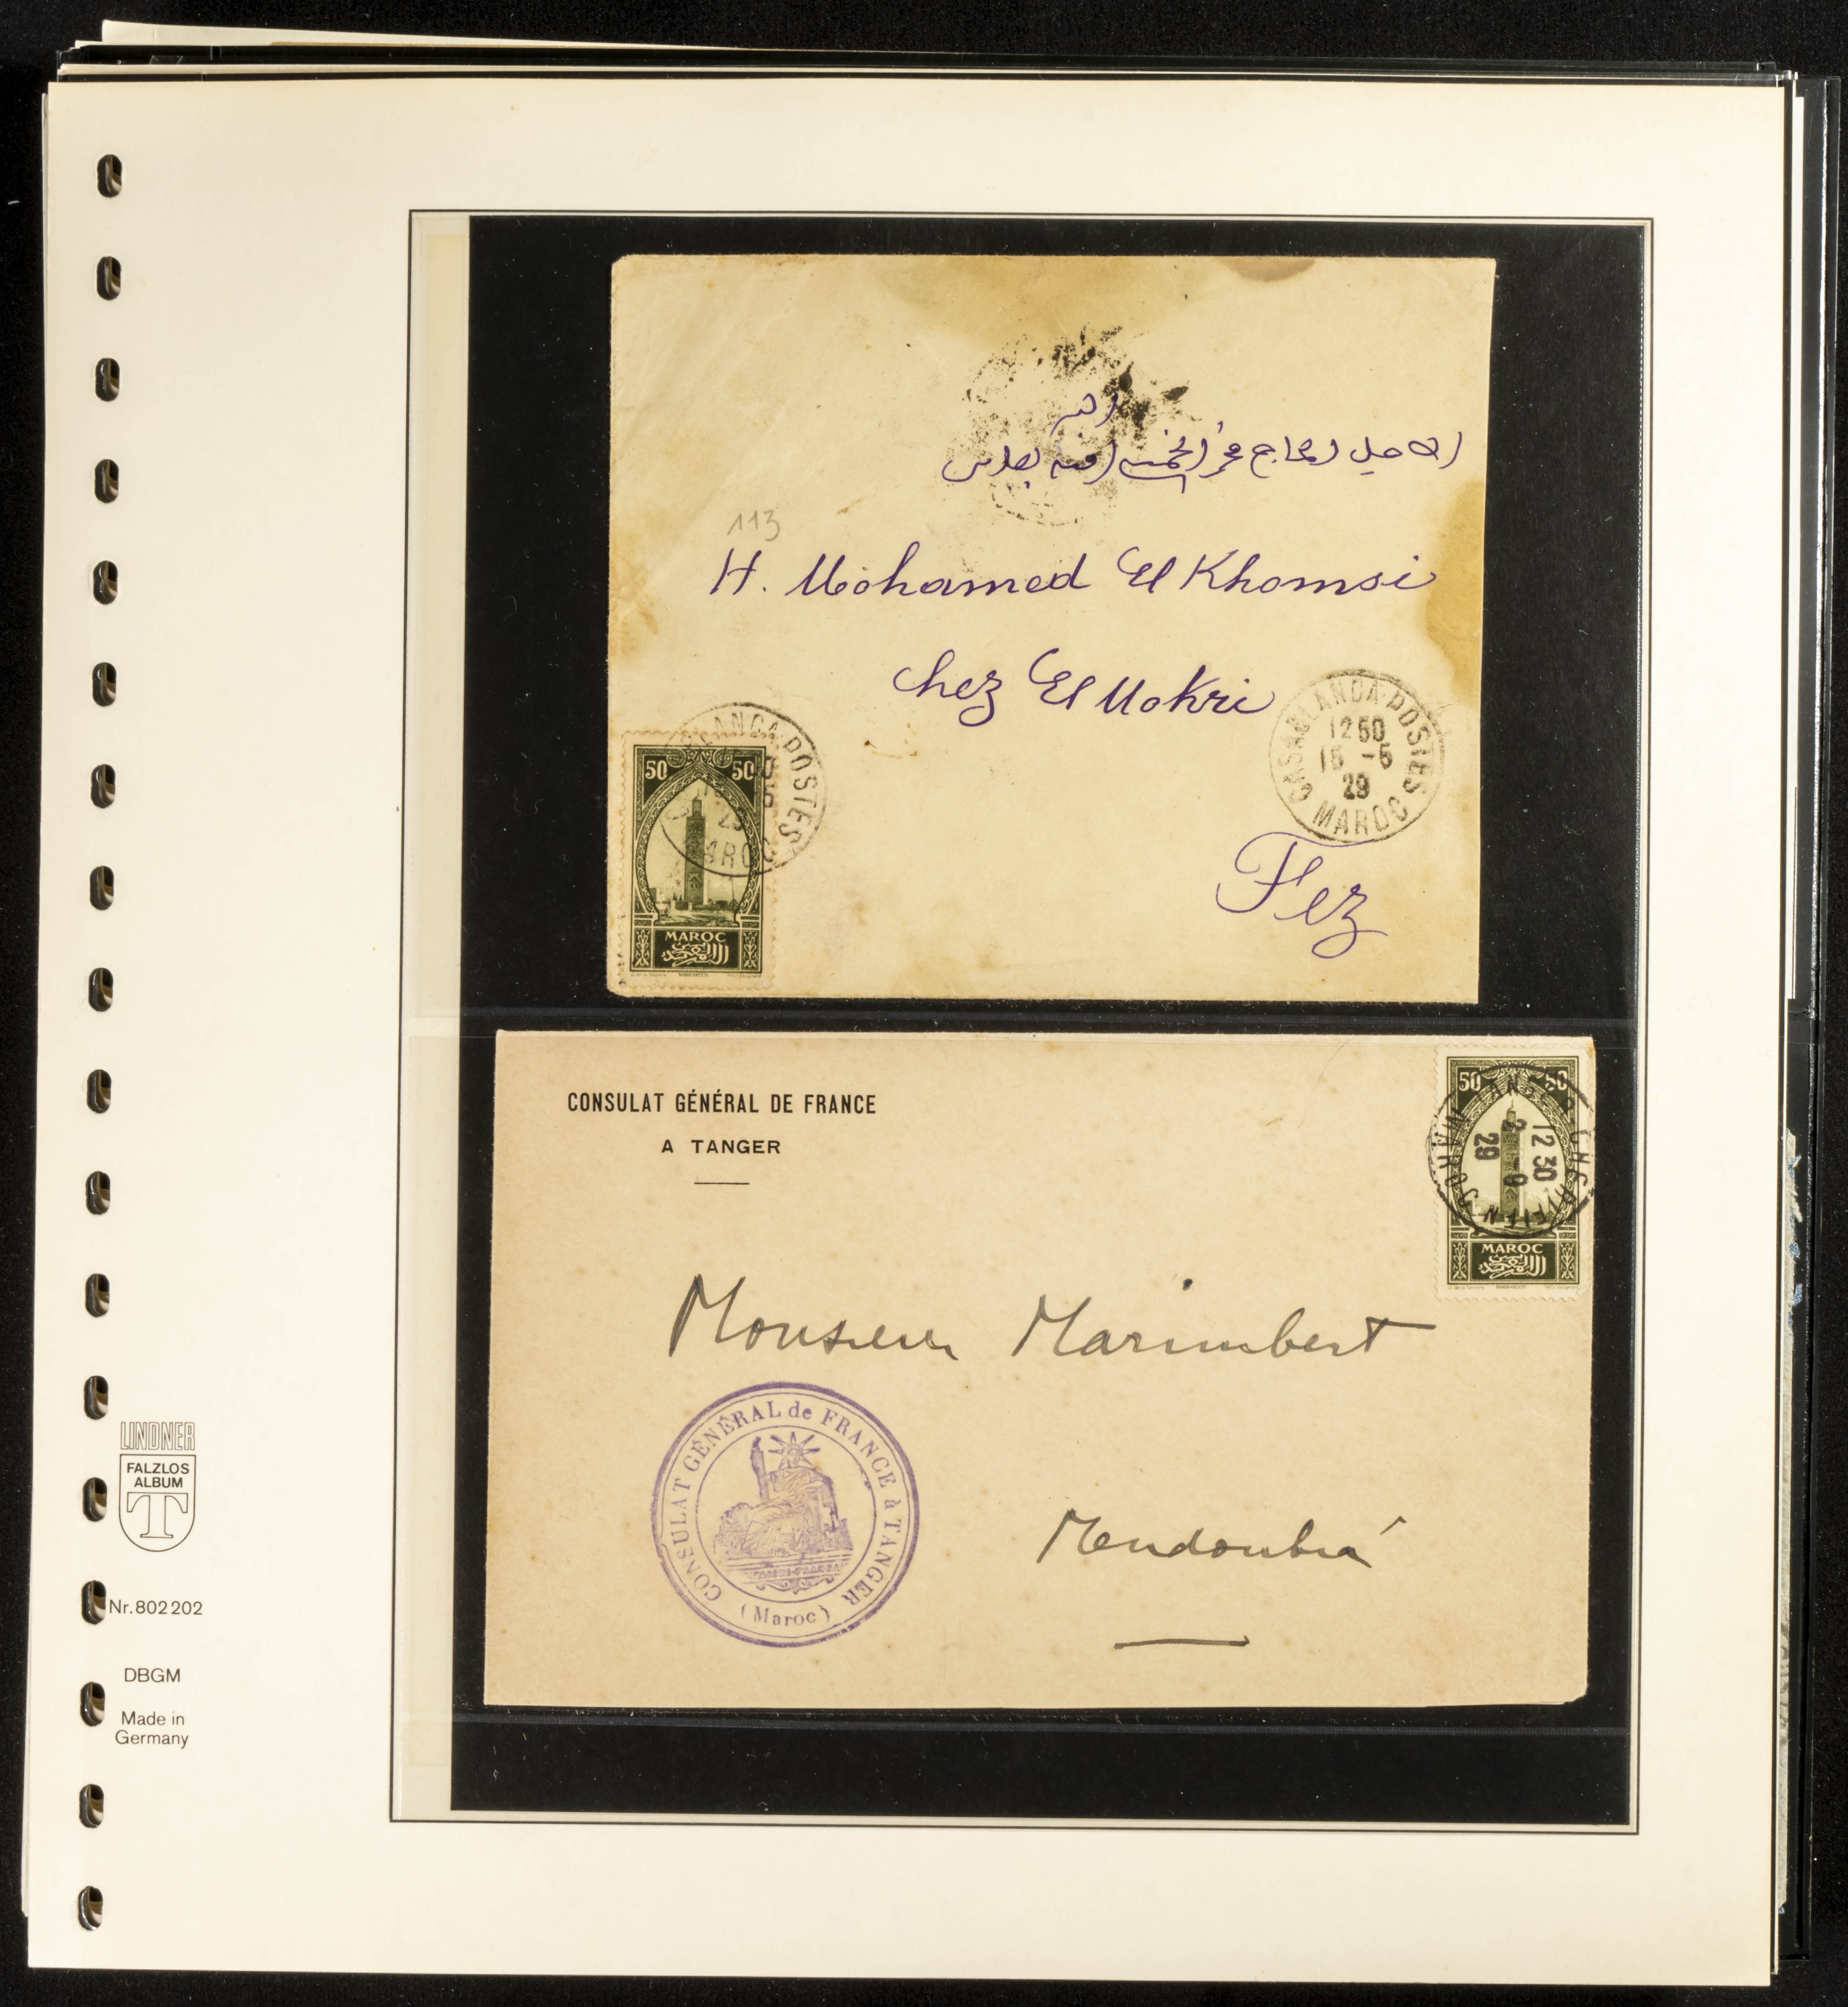 113
H. Mohamed El Khomsi
chez El Mokri
Fez
CASABLANCA-POSTES
1250
15 -5
29
MAROC
50 50
MAROC
CONSULAT GÉNÉRAL DE FRANCE
A TANGER
50 50
12 30
2 - 9
29
MAROC
MAROC
Monsieur Marimbert
CONSULAT GÉNÉRAL de FRANCE à TANGER
(Maroc)
Mendoubia
LINDNER
FALZLOS
ALBUM
T
Nr. 802 202
DBGM
Made in
Germany